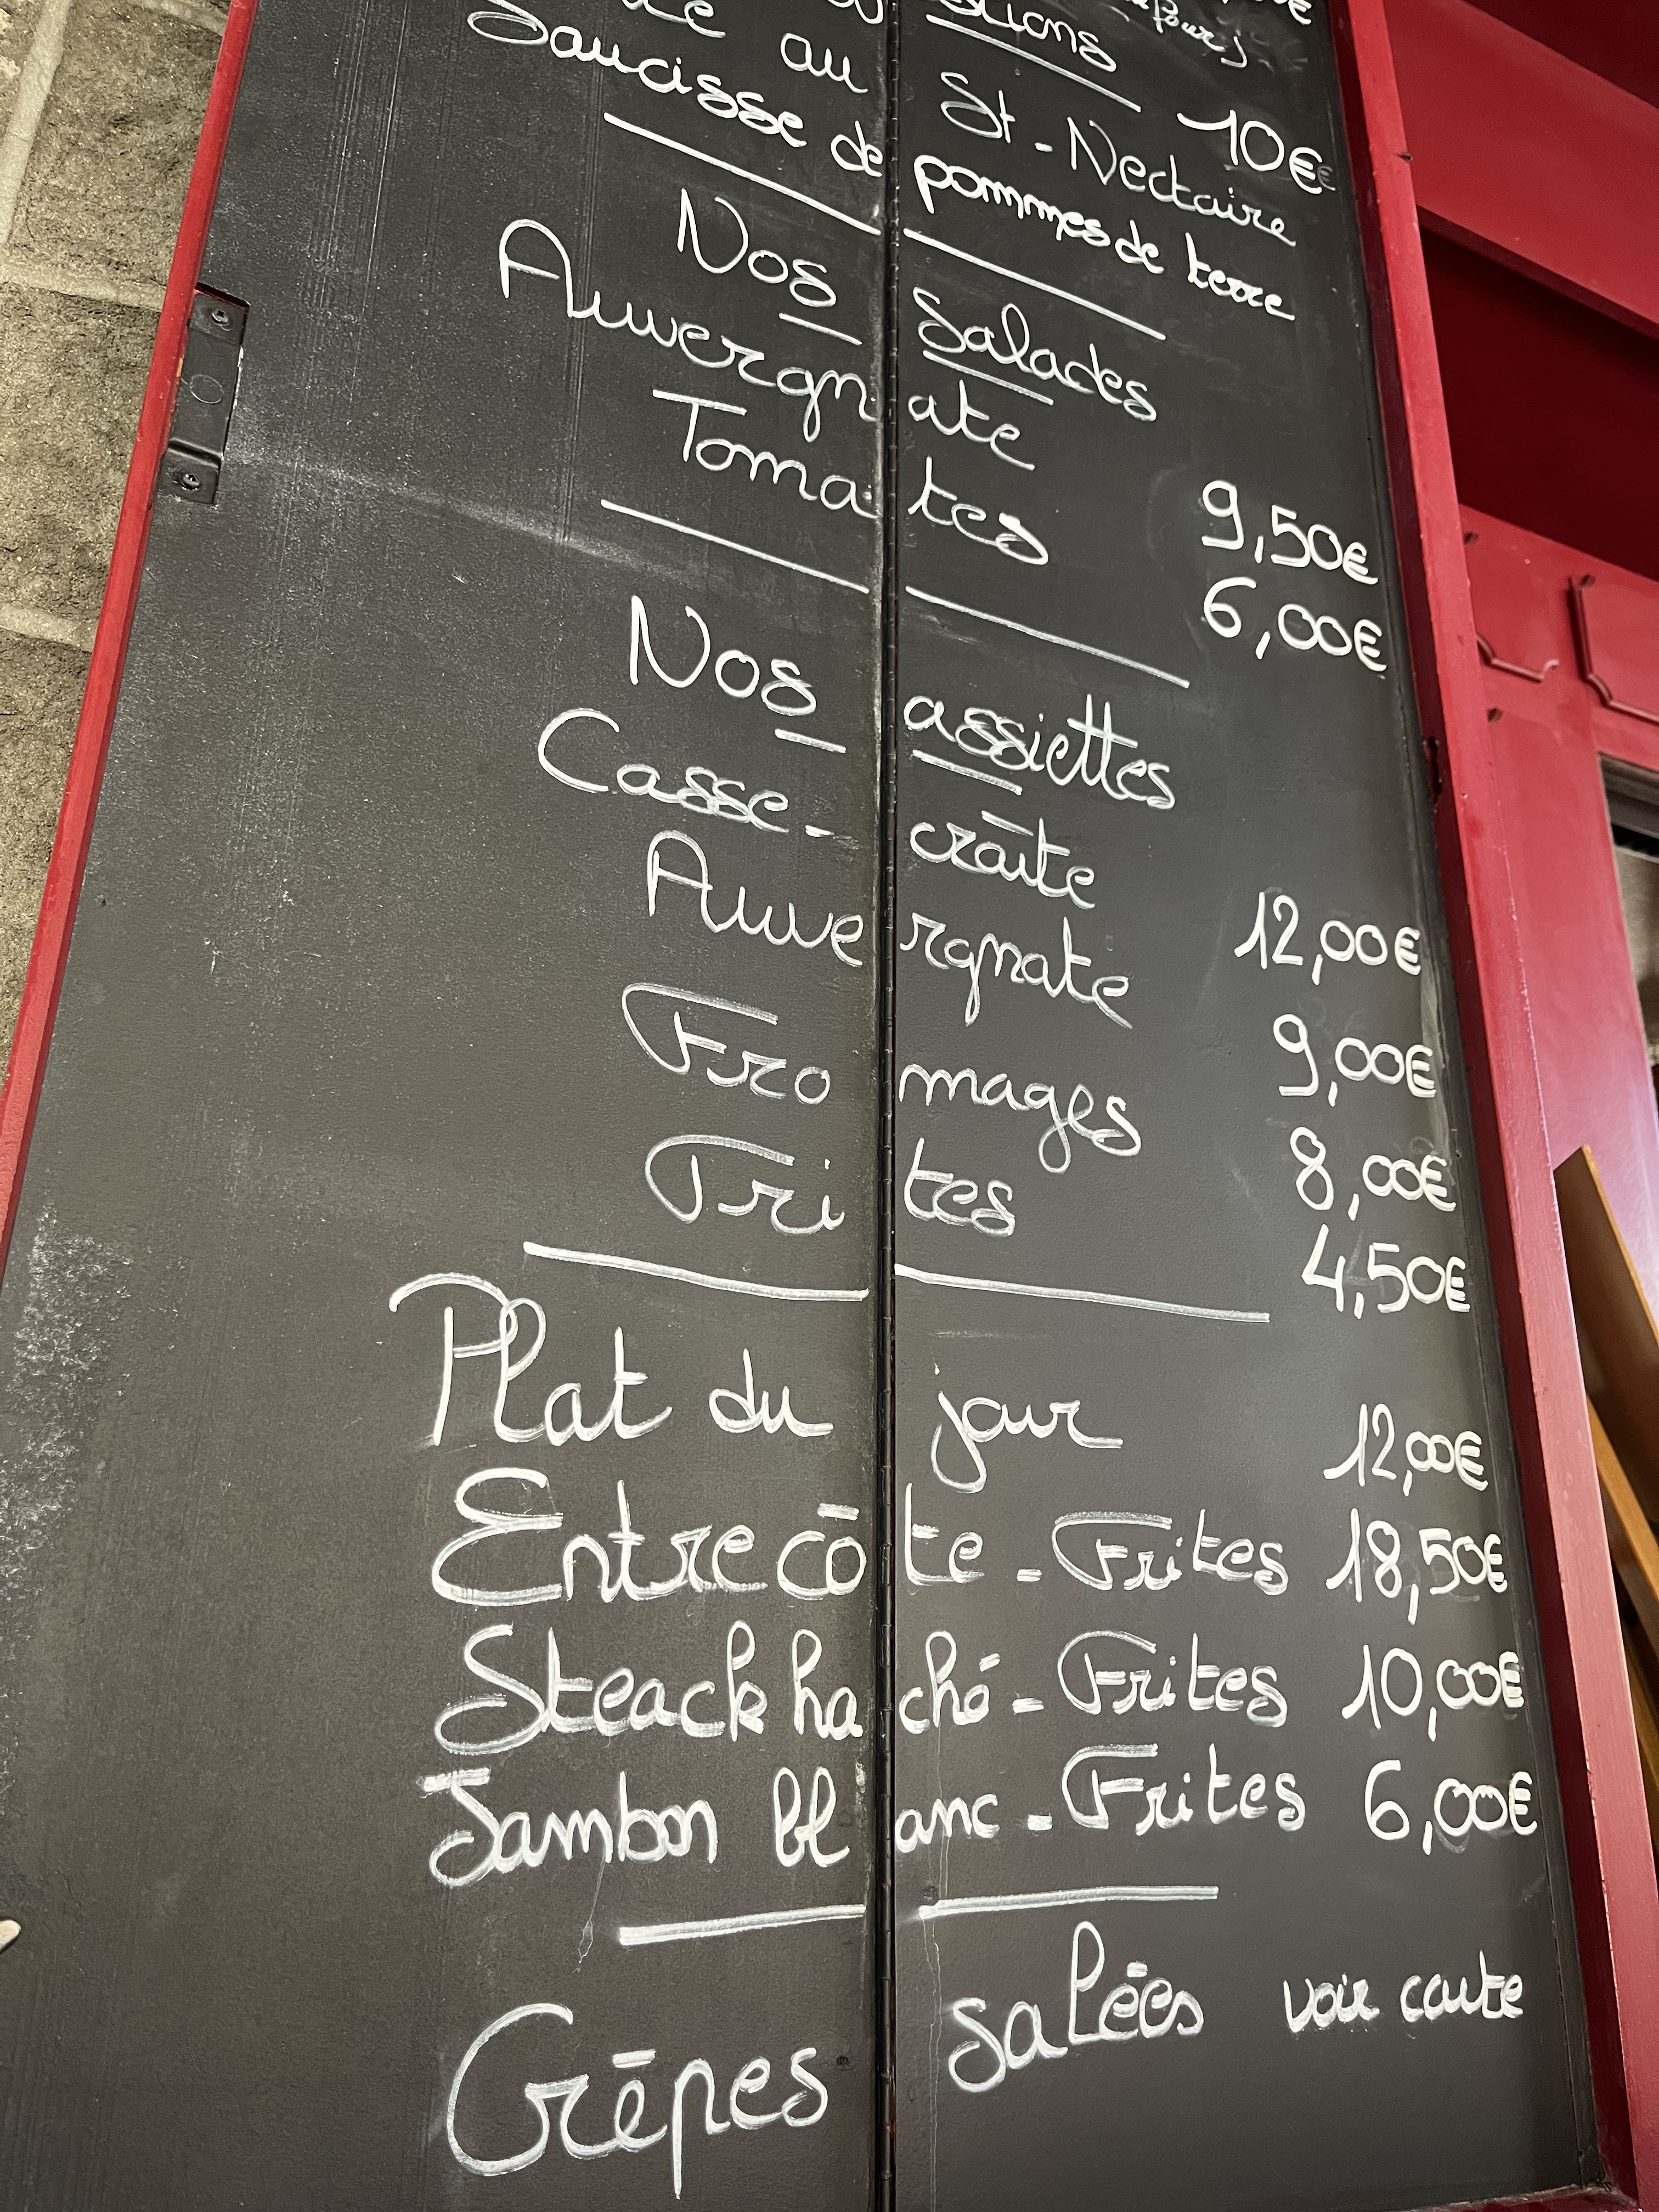 10€
au St-Nectaire
Saucisse de pommes de terre
Nos Salades
Auvergnate 9,50€
Tomates 6,00€
Nos assiettes
Casse-croûte 12,00€
Auvergnate 9,00€
Fromages 8,00€
Frites 4,50€
Plat du jour 12,00€
Entrecôte - Frites 18,50€
Steack haché - Frites 10,00€
Jambon blanc - Frites 6,00€
Crêpes salées voir carte